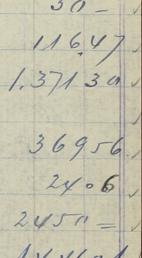 30 =
116.47
1.371 30
369 56
24.6
2450 =